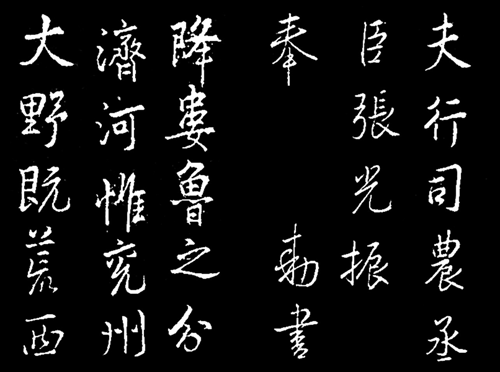 夫行司農丞
臣張光振
奉　勅書
降婁魯之分
濟河惟兖州
大野既荒西